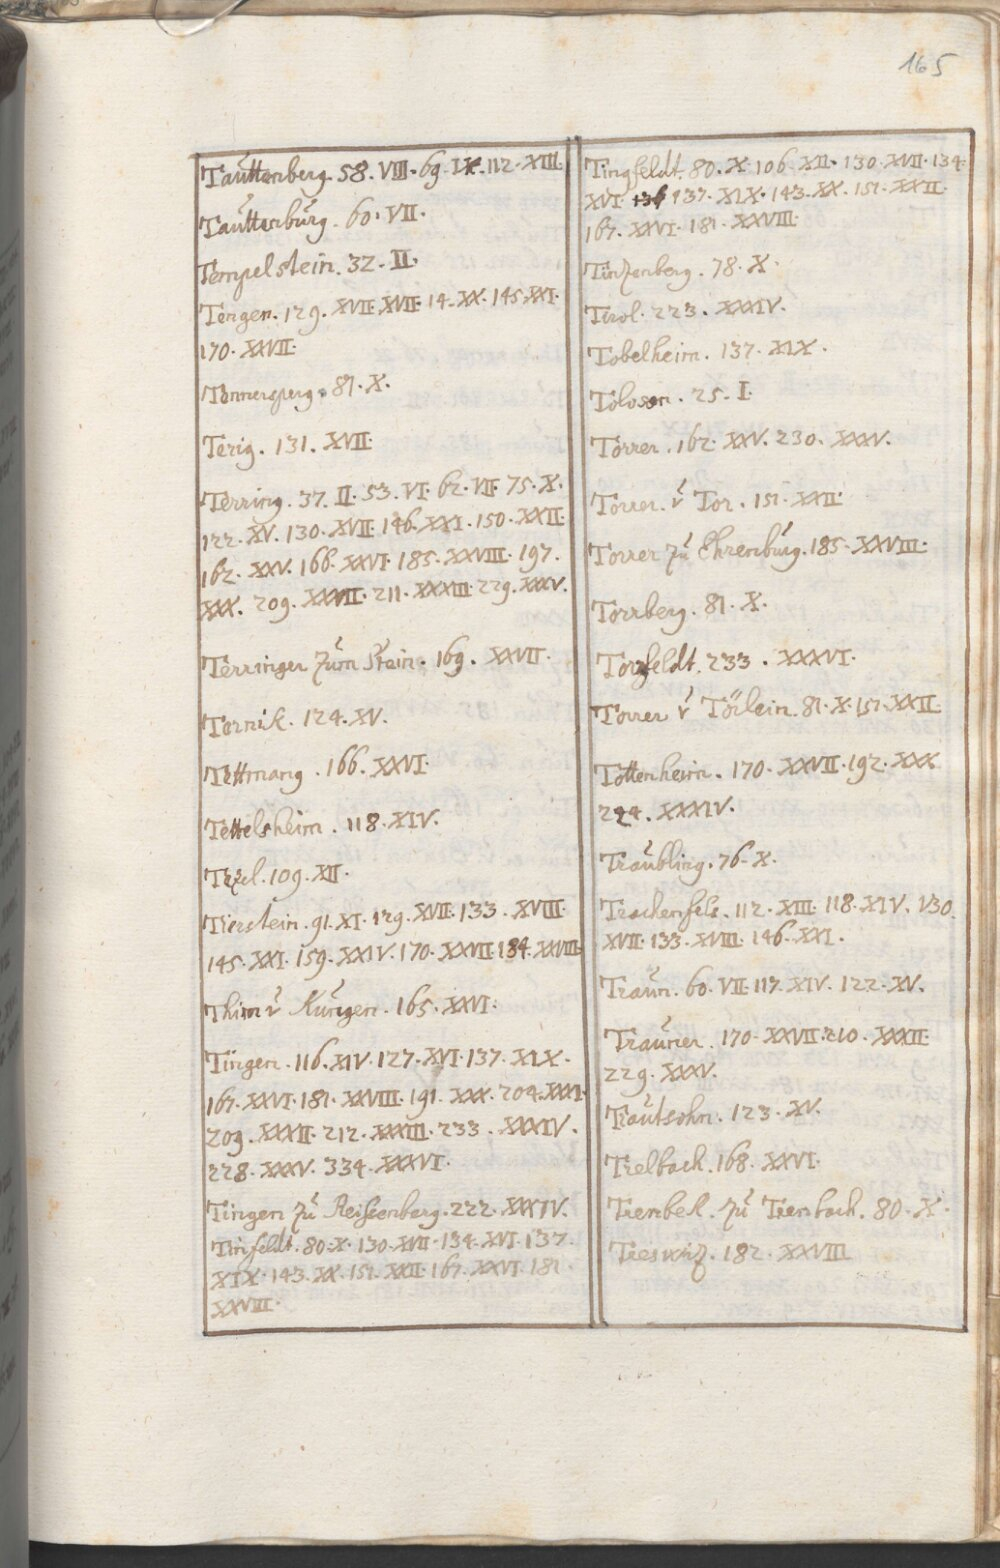 165
Tauttenberg. 58. VIII. 69. IX. 112. XIII.
Tauttenburg. 60. VII.
Tempelstein. 32. II.
Tengen. 129. XVII. XVII. 14. XX. 145. XXI.
170. XXVII.
Tennersperg. 81. X.
Terig. 131. XVII.
Terring. 37. II. 53. VI. 62. VII. 75. X.
122. XV. 130. XVII. 146. XXI. 150. XXII.
162. XXV. 166. XXVI. 185. XXVIII. 197.
XXX. 209. XXXII. 211. XXXIII. 229. XXXV.
Terringer zum Stain. 169. XXVII.
Ternik. 124. XV.
Tettmang. 166. XXVI.
Tettelsheim. 118. XIV.
Tezel. 109. XII.
Tierstein. 91. XI. 129. XVII. 133. XVIII.
145. XXI. 159. XXIV. 170. XXVII. 184. XXVIII.
Thim v Kungen. 165. XXVI.
Tingen. 116. XIV. 127. XVI. 137. XIX.
167. XXVI. 181. XXVIII. 191. XXX. 204. XXXI.
209. XXXII. 212. XXXIII. 233. XXXIV.
228. XXXV. 334. XXXVI.
Tingen zu Reissenberg. 222. XXXIV.
Tinfeldt. 80. X. 130. XVII. 134. XVI. 137.
XIX. 143. XX. 151. XXII. 167. XXVI. 181.
XXVIII.
Tingfeldt. 80. X. 106. XII. 130. XVII. 134.
XVI. 137. XIX. 143. XX. 151. XXII.
167. XXVI. 181. XXVIII.
Tinzenberg. 78. X.
Tirol. 223. XXXIV.
Tobelheim. 137. XIX.
Toloson. 25. I.
Torrer. 162. XXV. 230. XXXV.
Torrer. v Tor. 151. XXII.
Torrer zu Ehrenburg. 185. XXVIII.
Torrberg. 81. X.
Torzfeldt. 233. XXXVI.
Torrer v Törlein. 81. X. 151. XXII.
Tottenheim. 170. XXVII. 192. XXX.
224. XXXIV.
Traubling. 76. X.
Trachenfels. 112. XIII. 118. XIV. 130.
XVII. 133. XVIII. 146. XXI.
Traun. 60. VII. 117. XIV. 122. XV.
Trauner. 170. XXVII. 210. XXXII.
229. XXXV.
Trautsohn. 123. XV.
Trelbach. 168. XXVI.
Trenbek. zu Trenbach. 80. X.
Treswiz. 182. XXVIII